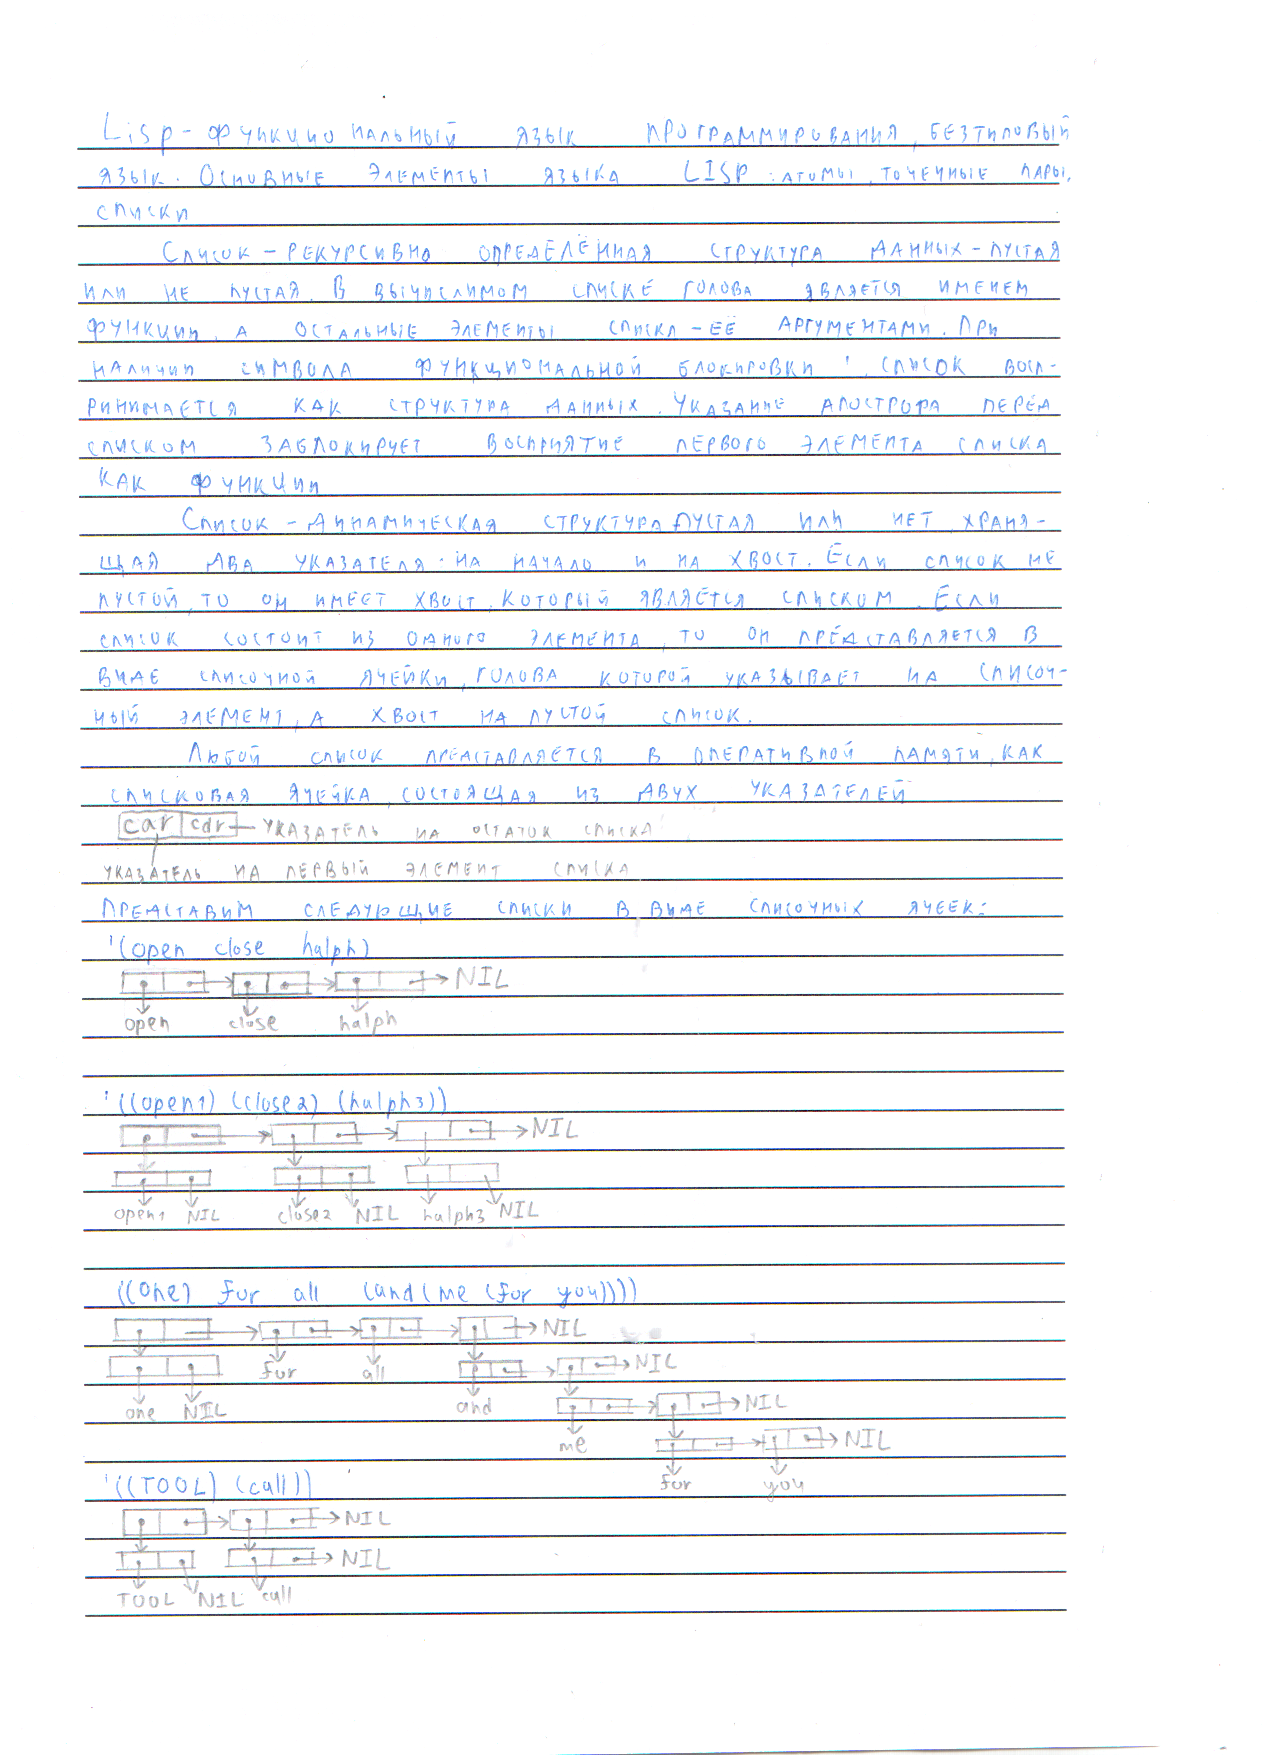 Lisp - функциональный язык программирования, безтиповый
язык. Основные элементы языка LISP: атомы, точечные пары,
списки
Список - рекурсивно определённая структура данных - пустая
или не пустая. В вычислимом списке голова является именем
функции, а остальные элементы списка - её аргументами. При
наличии символа функциональной блокировки ' список восп-
ринимается как структура данных. Указание апострофа перед
списком заблокирует восприятие первого элемента списка
как функции
Список - динамическая структура пустая или нет, храня-
щая два указателя: на начало и на хвост. Если список не
пустой, то он имеет хвост, который является списком. Если
список состоит из одного элемента, то он представляется в
виде списочной ячейки, голова которой указывает на списоч-
ный элемент, а хвост на пустой список.
Любой список представляется в оперативной памяти, как
списковая ячейка, состоящая из двух указателей
car cdr - указатель на остаток списка
указатель на первый элемент списка
Представим следующие списки в виде списочных ячеек:
'(open close halph)
NIL
open close halph
'((open1) (close2) (halph3))
NIL
open1 NIL close2 NIL halph3 NIL
'((one) for all (and (me (for you))))
NIL
for all NIL
one NIL and NIL
me NIL
for you
'((TOOL) (call))
NIL
NIL
TOOL NIL call